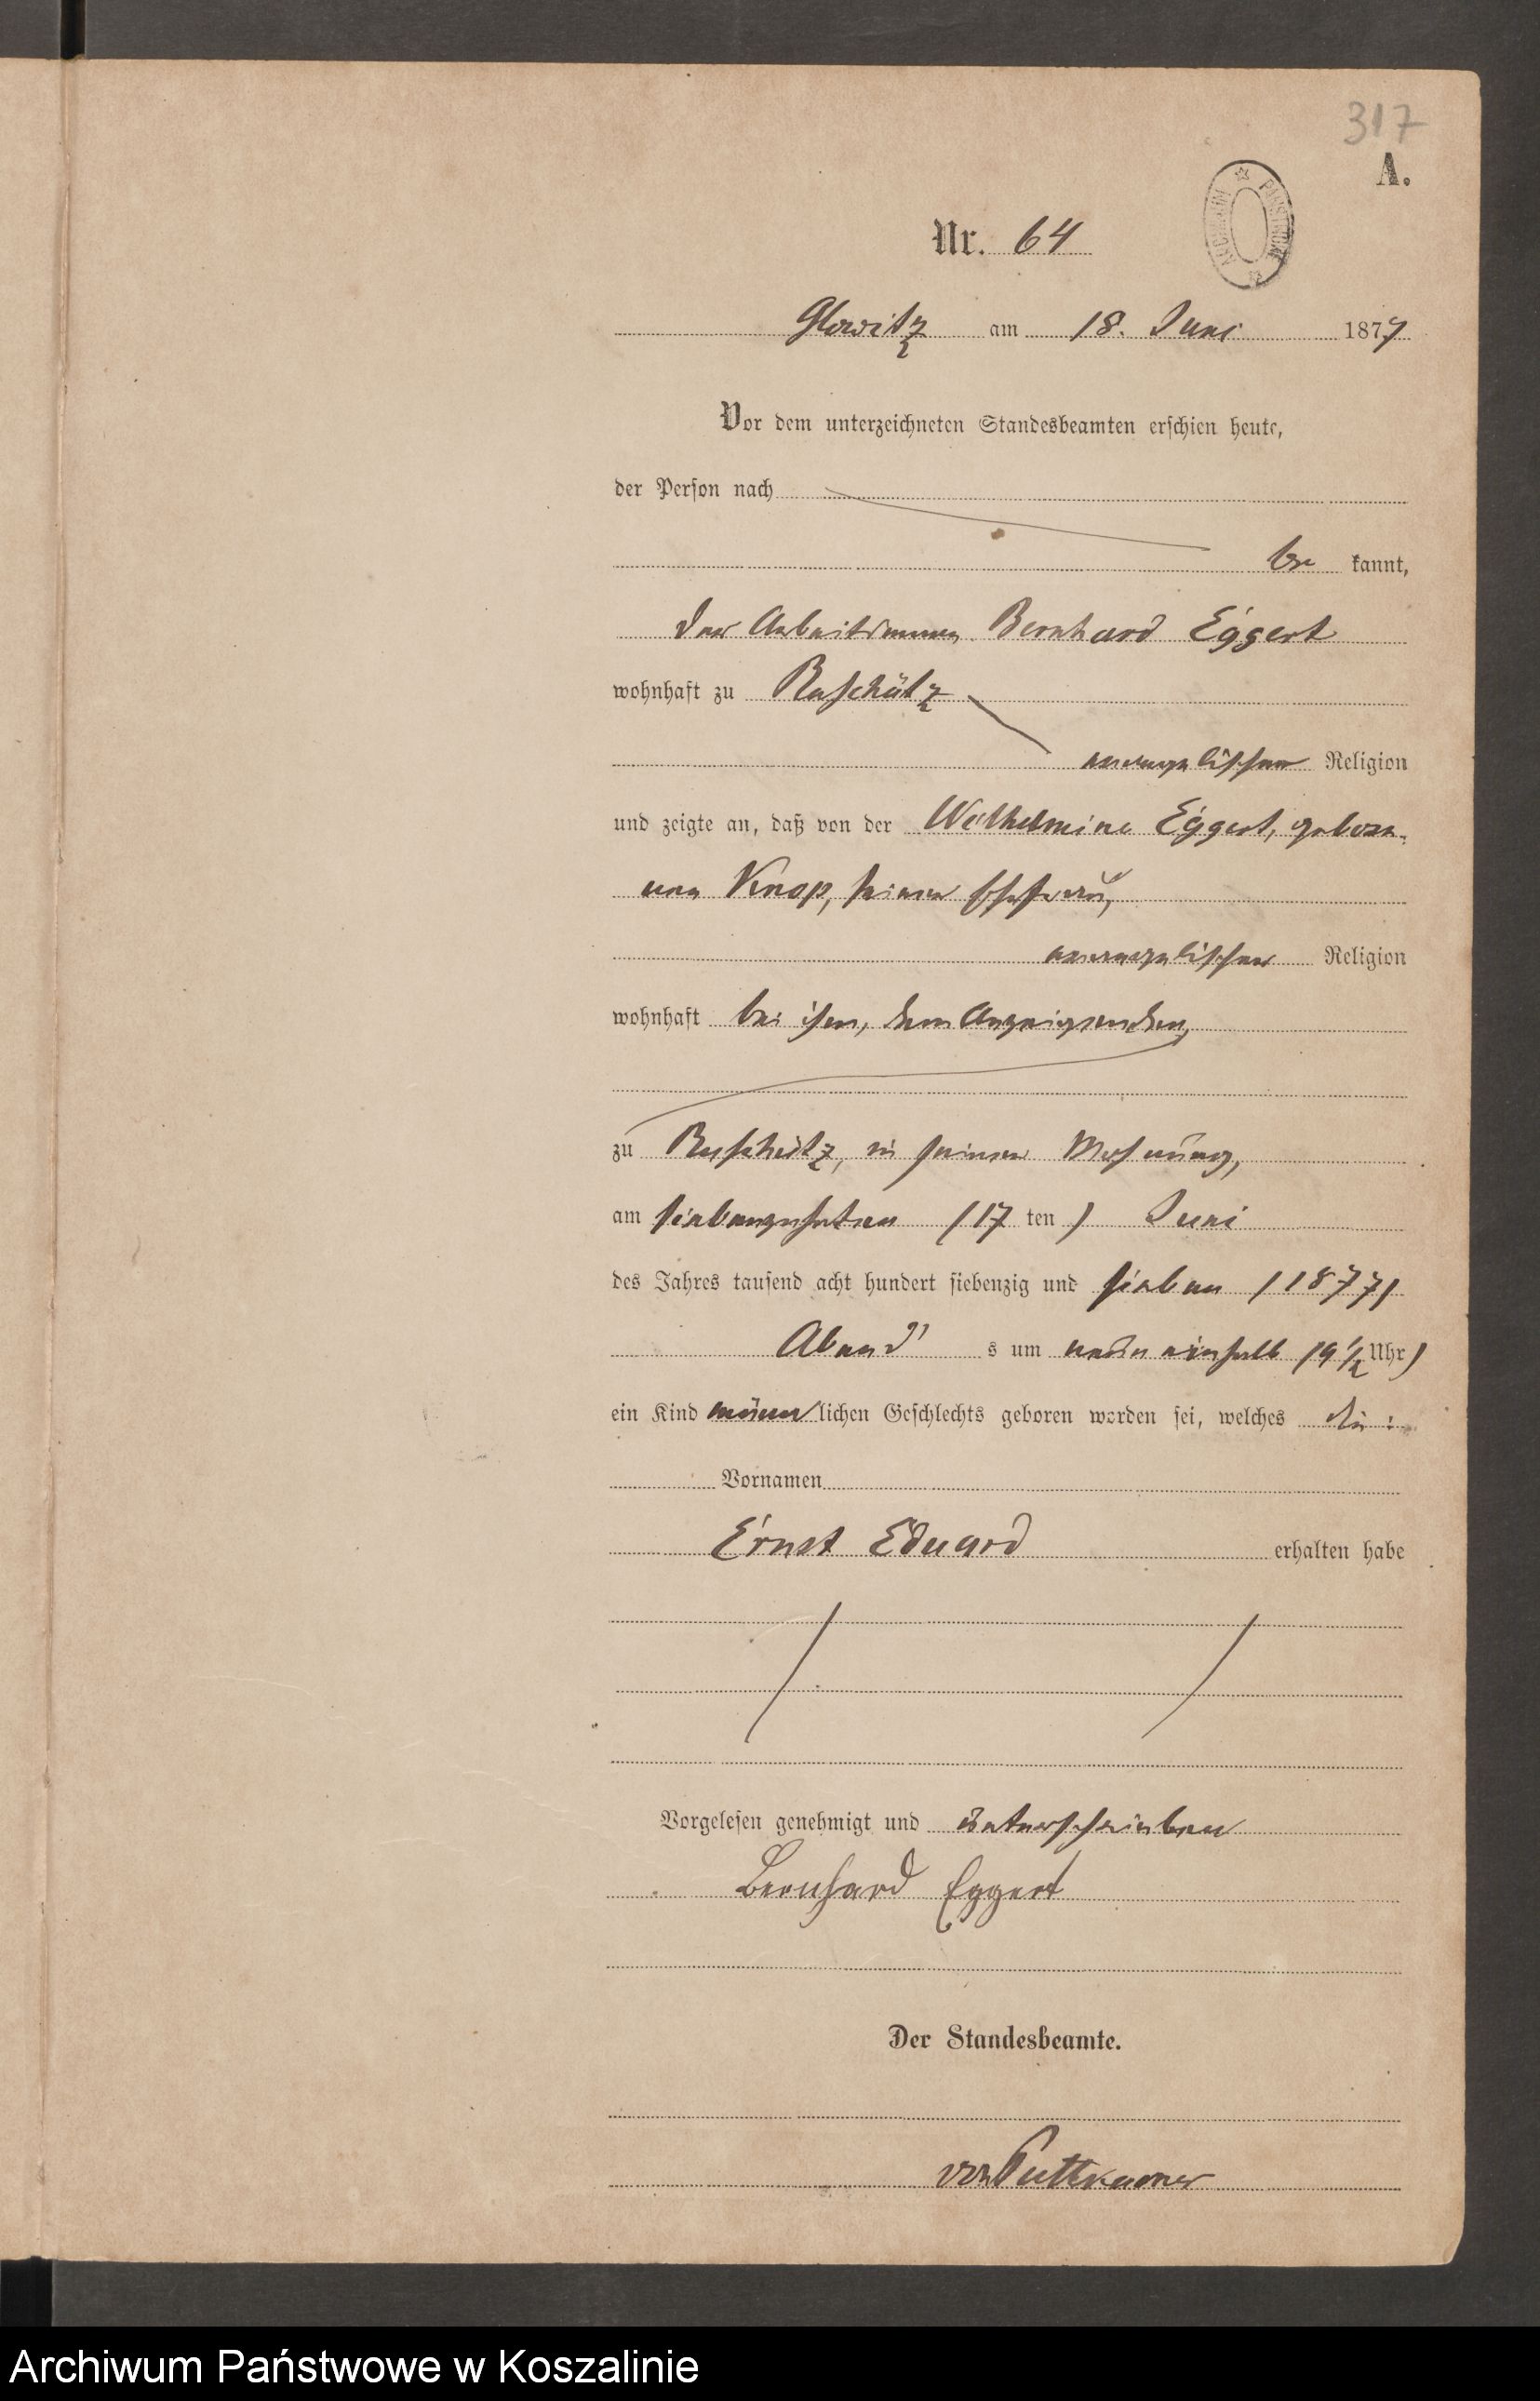 317
A.
ARCHIWUM PAŃSTWOWE
Nr. 64
Glowitz am 18. Juni 1877
Vor dem unterzeichneten Standesbeamten erschien heute,
der Person nach
be kannt,
der Arbeitsmann Bernhard Eggert
wohnhaft zu Ruschütz
evangelischer Religion
und zeigte an, daß von der Wilhelmine Eggert, gebore-
nen Knop, seiner Ehefrau,
evangelischer Religion
wohnhaft bei ihm, dem Anzeigenden,
zu Ruschütz, in seiner Wohnung,
am siebenzehnten (17 ten) Juni
des Jahres tausend acht hundert siebenzig und sieben (1877)
Abend s um neun einhalb (9 1/2 Uhr)
ein Kind männ lichen Geschlechts geboren worden sei, welches die :
Vornamen
Ernst Eduard erhalten habe
Vorgelesen genehmigt und unterschrieben
Bernhard Eggert
Der Standesbeamte.
von Puttkamer
Archiwum Państwowe w Koszalinie